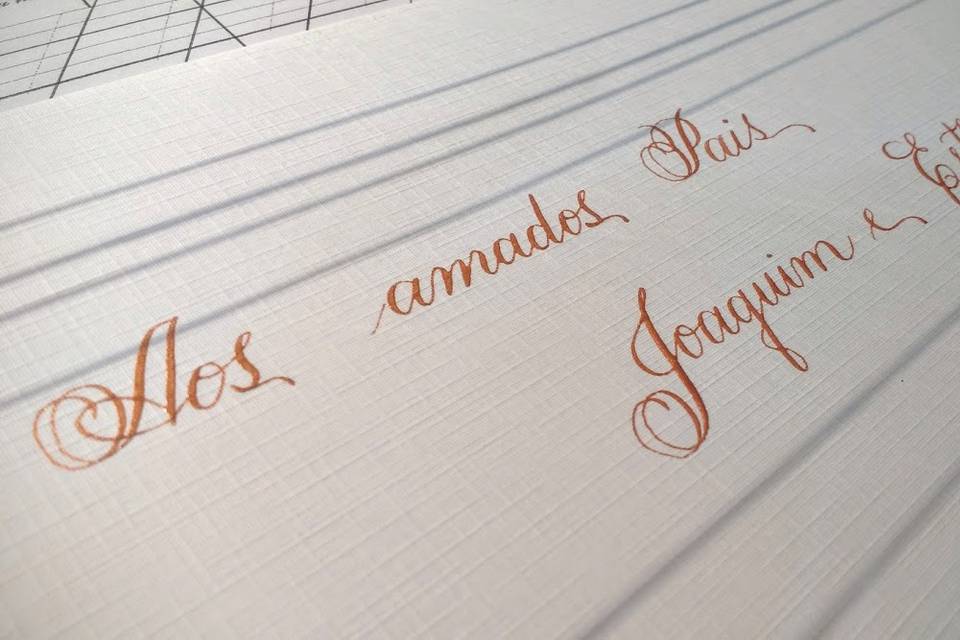 Aos amados Pais
Joaquim e